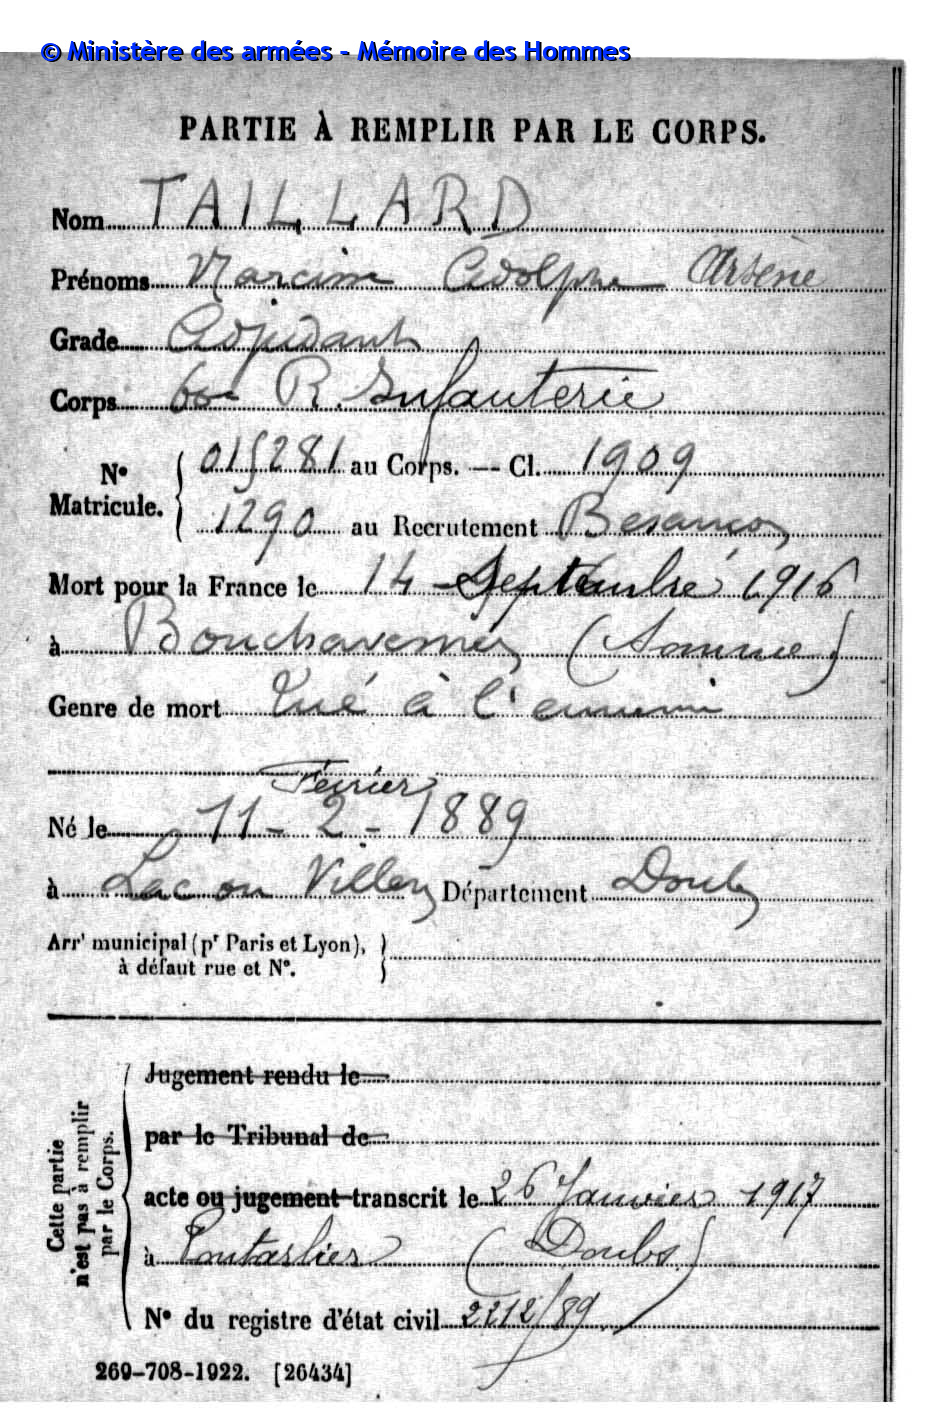 © Ministère des armées - Mémoire des Hommes
PARTIE À REMPLIR PAR LE CORPS.
Nom TAILLARD
Prénoms Narcisse Adolphe Arsène
Grade Adjudant
Corps 60e R. Infanterie
N° Matricule. 015281 au Corps. — Cl. 1909
1290 au Recrutement Besançon
Mort pour la France le 14 Septembre 1916
à Bouchavesnes (Somme)
Genre de mort Tué à l'ennemi
Février
Né le 11-2-1889
à Lac ou Villers Département Doubs
Arrt municipal (pr Paris et Lyon),
à défaut rue et N°.
Cette partie
n'est pas à remplir
par le Corps.
Jugement rendu le
par le Tribunal de
acte ou jugement transcrit le 26 Janvier 1917
à Pontarlier (Doubs)
N° du registre d'état civil 2212/89
269-708-1922. [26434]